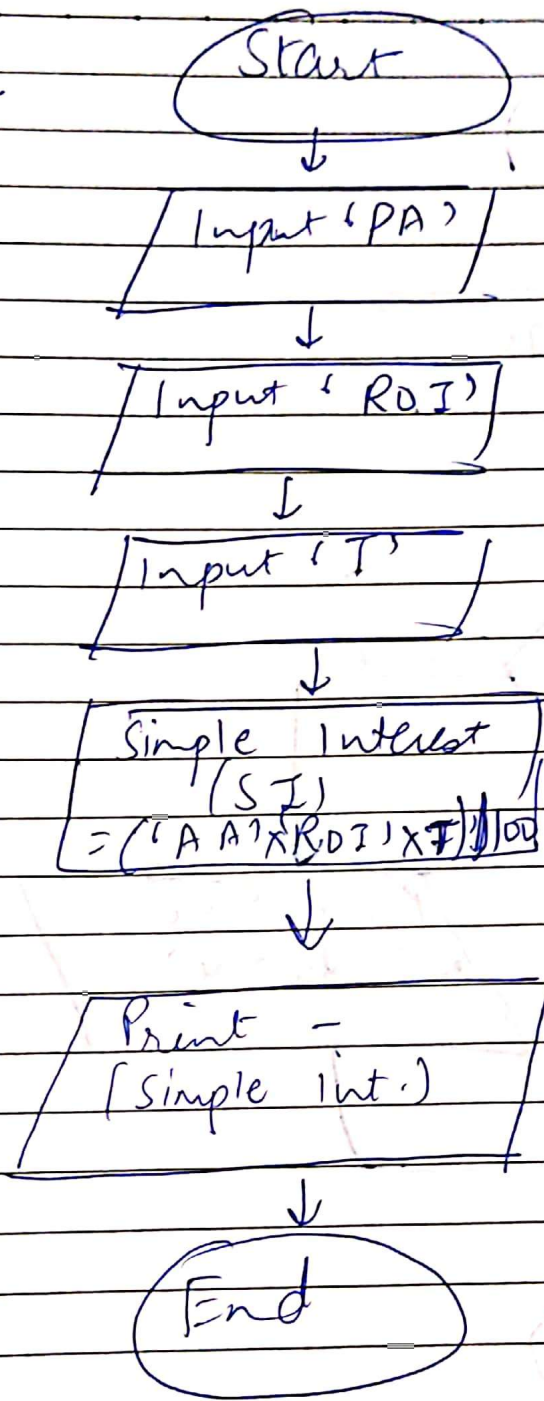 Start
Input 'PA'
Input ' ROI'
Input 'T'
Simple Interest
(SI)
= ('AA'XROI'XT)/100
Print -
(Simple Int.)
End